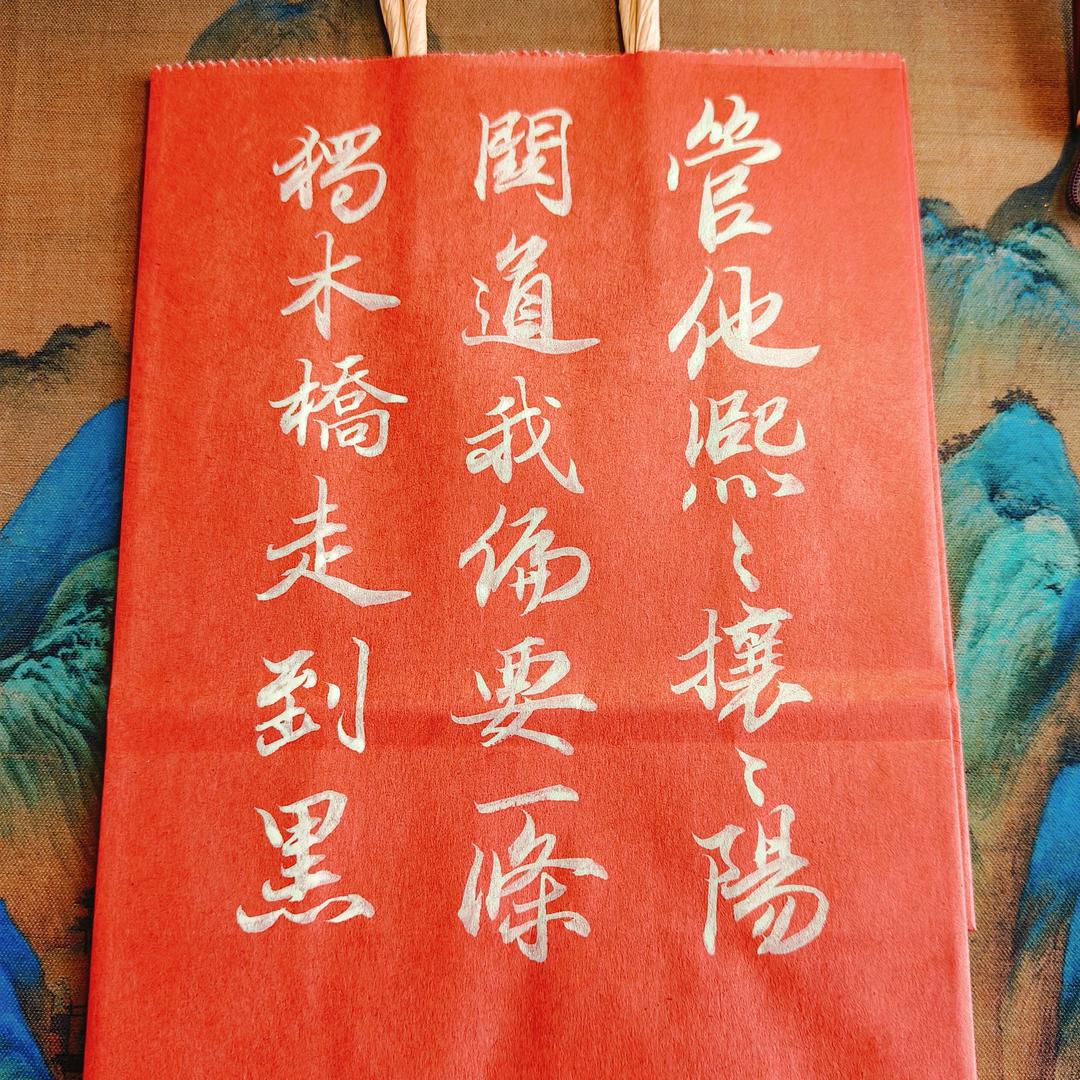 管他熙〻攘〻陽
關道我偏要一條
獨木橋走到黑